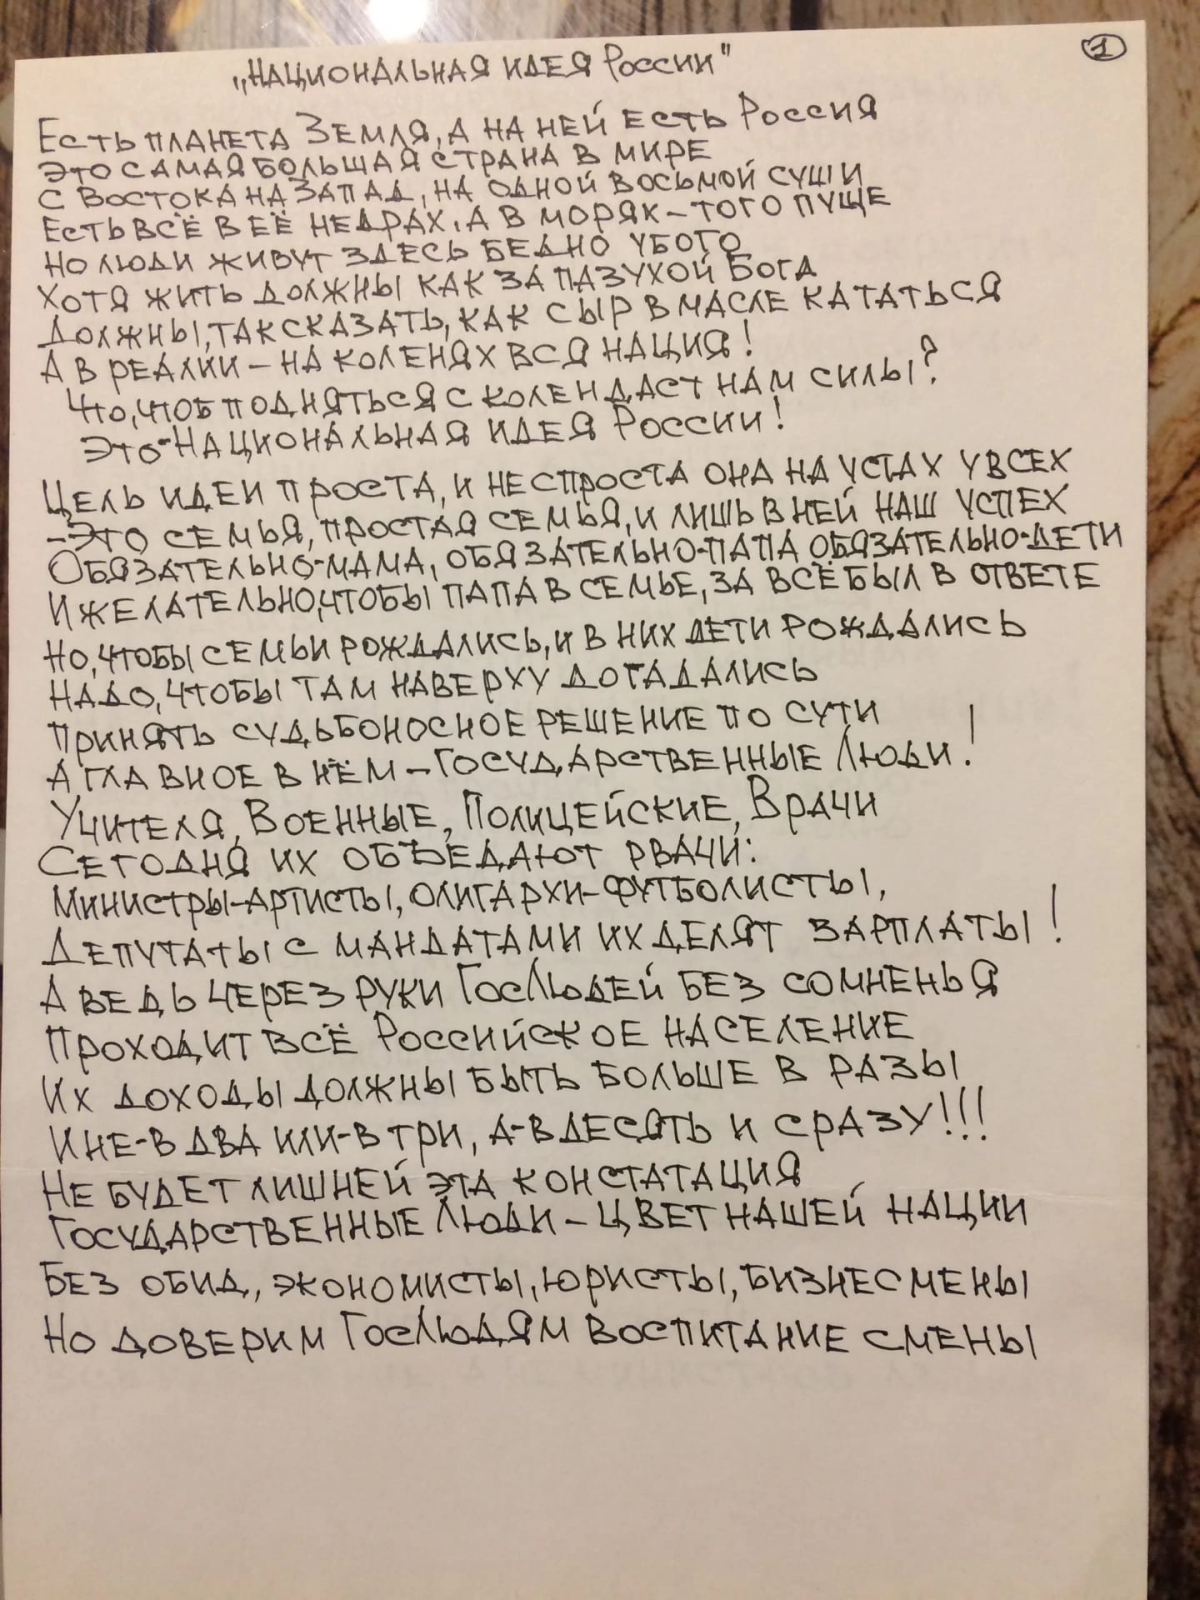 1
„Национальная идея России"
Есть планета Земля, а на ней есть Россия
Это самая большая страна в мире
С Востока на Запад, на одной восьмой суши
Есть всё в её недрах, а в морях – того пуще
Но люди живут здесь бедно убого
Хотя жить должны как за пазухой Бога
Должны, так сказать, как сыр в масле кататься
А в реалии – на коленях вся нация!
Что, чтоб подняться с колен даст нам силы?
Это – Национальная идея России!
Цель идеи проста, и неспроста она на устах у всех
– Это семья, простая семья, и лишь в ней наш успех
Обязательно-мама, обязательно-папа обязательно-дети
И желательно, чтобы папа в семье, за всё был в ответе
Но, чтобы семьи рождались, и в них дети рождались
Надо, чтобы там наверху догадались
Принять судьбоносное решение по сути
А главное в нём – Государственные Люди!
Учителя, Военные, Полицейские, Врачи
Сегодня их объедают рвачи:
Министры-артисты, олигархи-футболисты,
Депутаты с мандатами их делят зарплаты!
А ведь через руки ГосЛюдей без сомненья
Проходит всё Российское население
Их доходы должны быть больше в разы
И не-в два или-в три, а-в десять и сразу!!!
Не будет лишней эта констатация
Государственные Люди – цвет нашей нации
Без обид, экономисты, юристы, бизнесмены
Но доверим ГосЛюдям воспитание смены